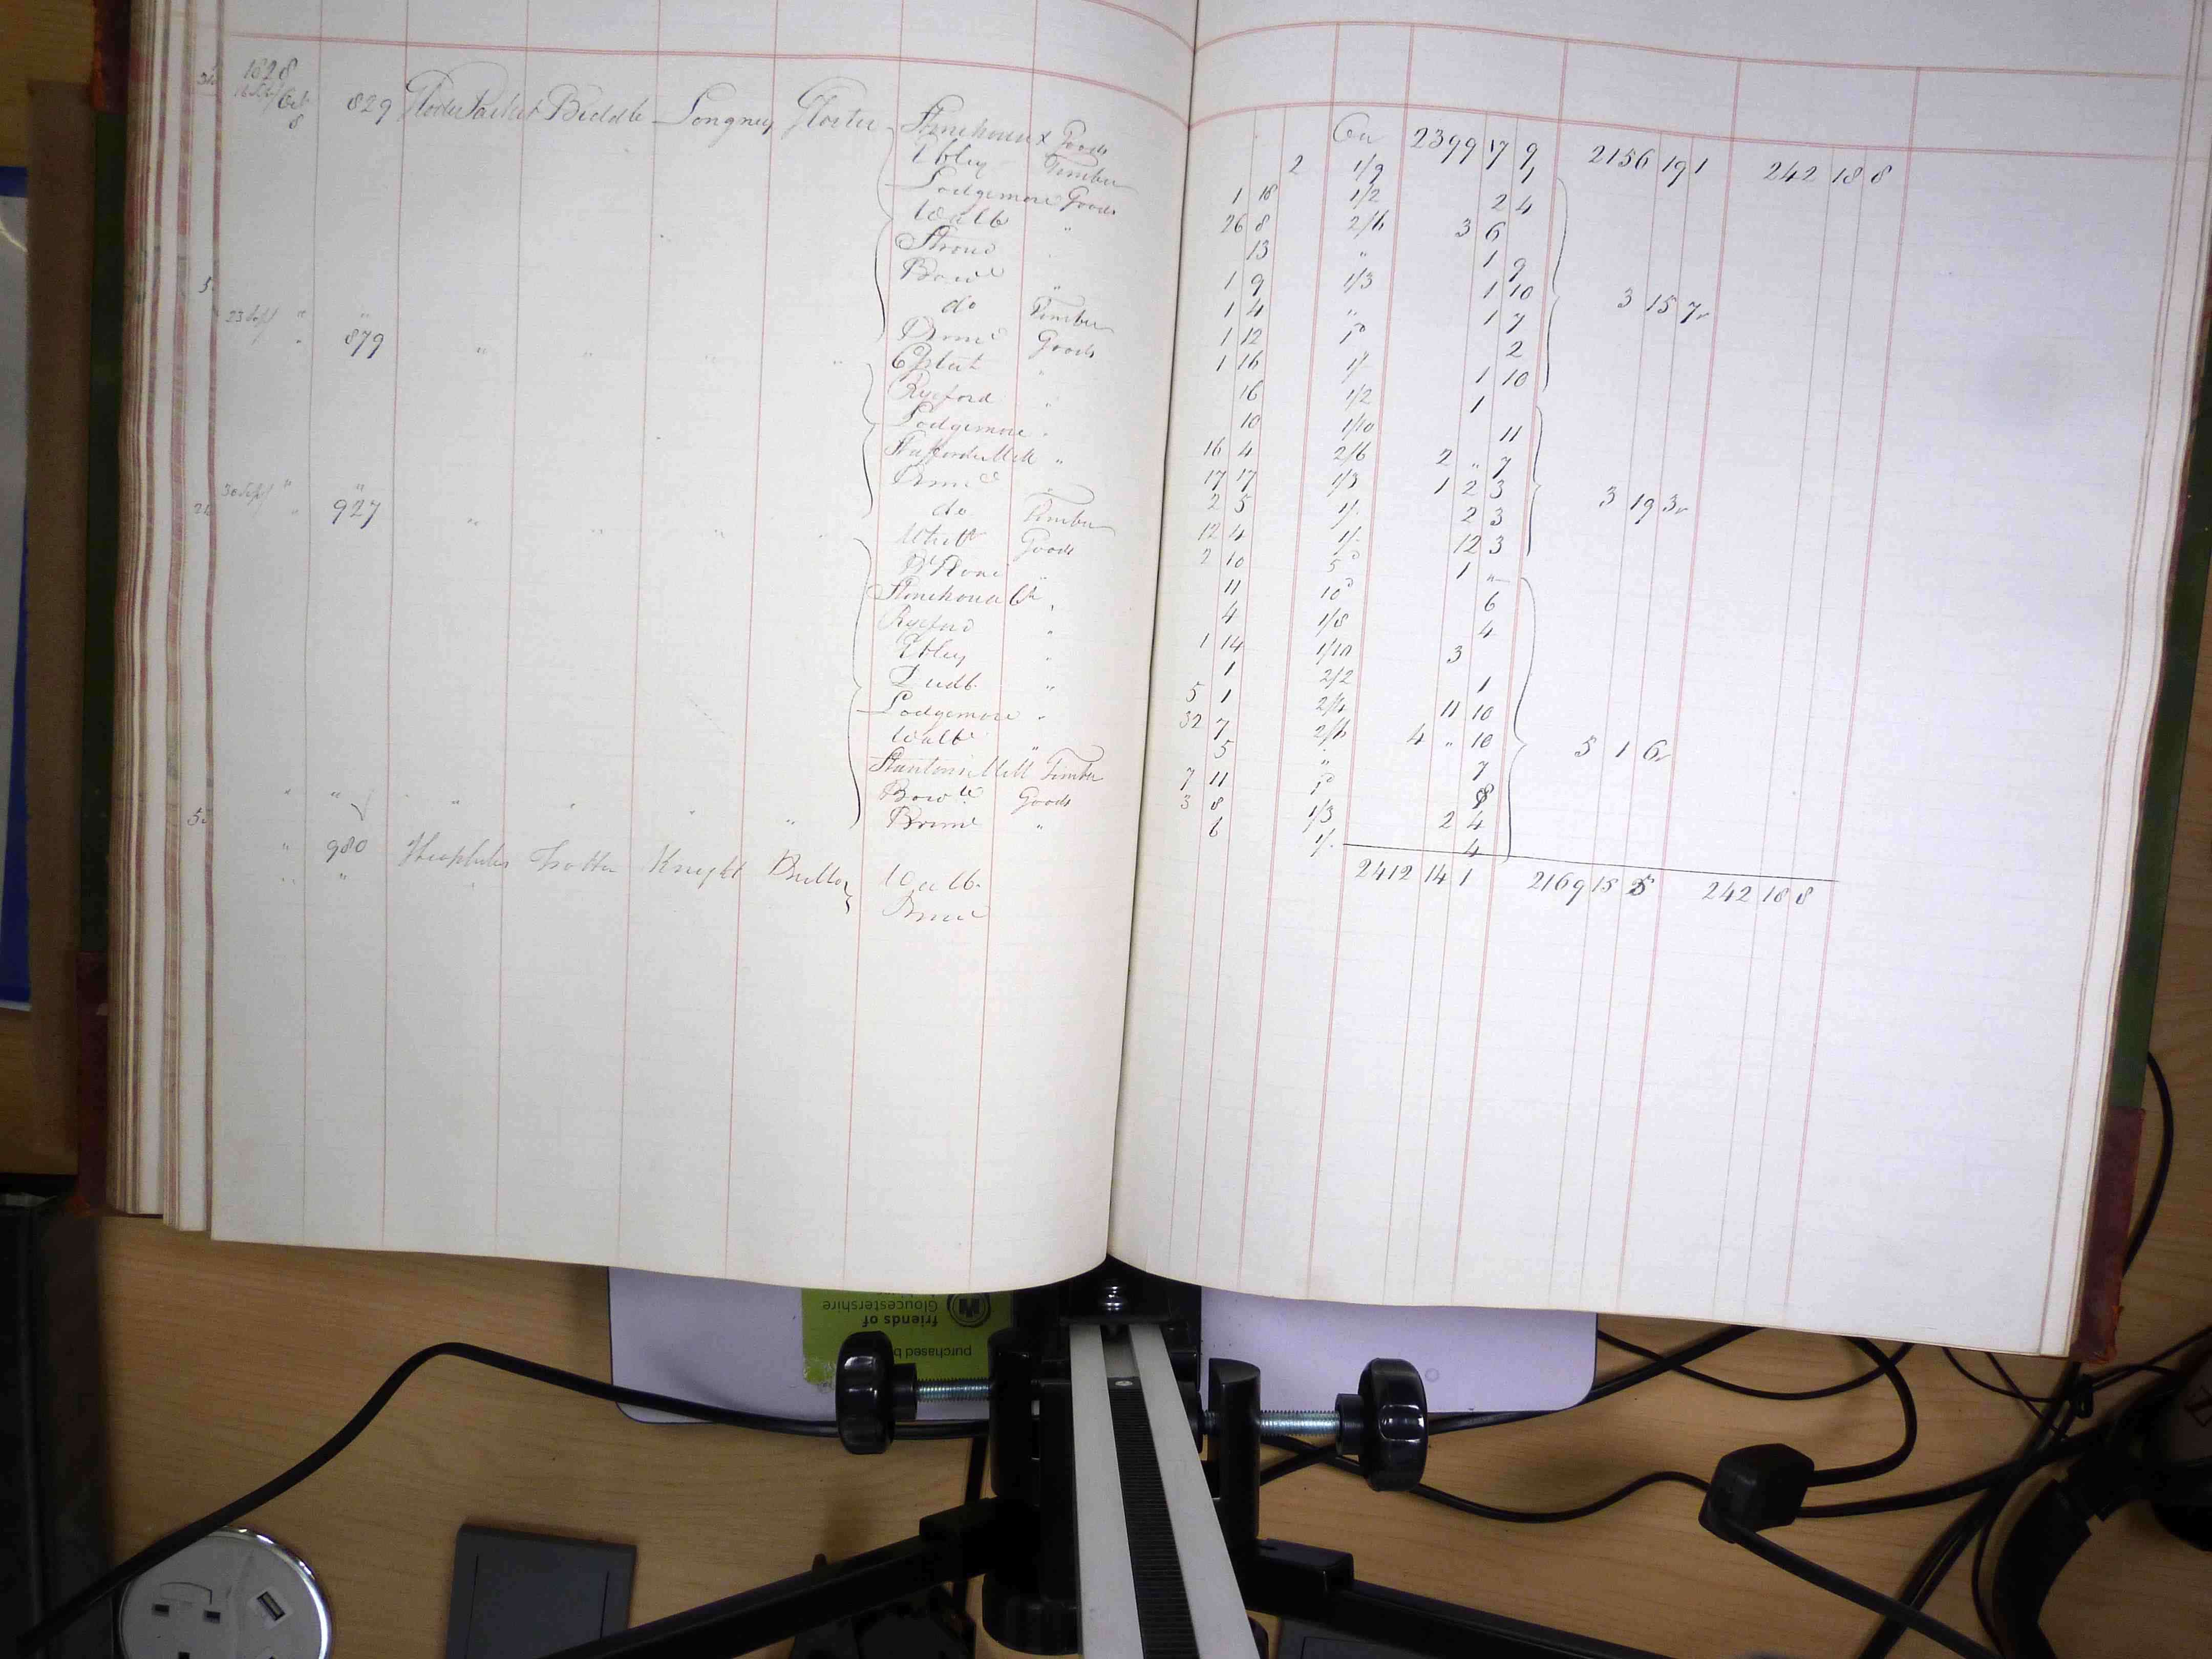 1828
Cr 2399 17 9 2156 19 1 242 18 8
Oct 8 829 Gloster Packet Biddle Longney Gloster Stonehouse Goods 2 1/9 1
Ebley Timber 1 18 1/2 2 4
Lodgemore Goods 26 8 2/6 3 6
Wallb " 13 " 1 9
Stroud 1 9 1/3 1 10
Bowd " 1 4 " 1 7
do Timber 1 12 2
Brimd Goods 1 16 1/. 1 10
3 15 7
23 Sept " 879 " " " " " 16 1/2 1
Ryeford " 10 1/10 11
Lodgemore " 16 4 2/6 2 " 7
Staffords Mill " 17 17 1/3 1 2 3
Brimd " 2 5 1/. 2 3
do Timber 12 4 1/. 12 3
3 19 3
30 Sept " 927 " " " " Goods 2 10 5d 1 "
" 11 10d 6
Stonehouse " 4 1/8 4
Ryeford " 1 14 1/10 3
Ebley " 1 2/2 1
Dudb " 5 1 2/4 11 10
Lodgemore " 32 7 2/6 4 " 10
Wallb " 5 " 7
Stantons Mill Timber 7 11 8
Bowd Goods 3 8 1/3 2 4
Brimd " 6 1/. 4
5 1 6
" 980 Theophilus Trotter Knight Bullo Wallb
Brimd
2412 14 1 2169 15 5 242 18 8
purchased b
friends of
Gloucestershire